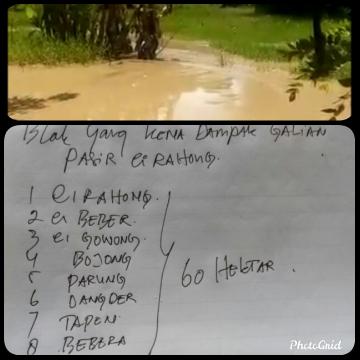 Blok Yang KENA DAMPAK GALIAN
PASIR CiRAHONG.
1 CiRAHONG.
2 Ci BEBER.
3 Ci GOWONG.
4 BOJONG
5 PARUNG
6 DANGDER
7 TAPEN
8 BEBERA
60 HEKTAR.
PhotoGrid